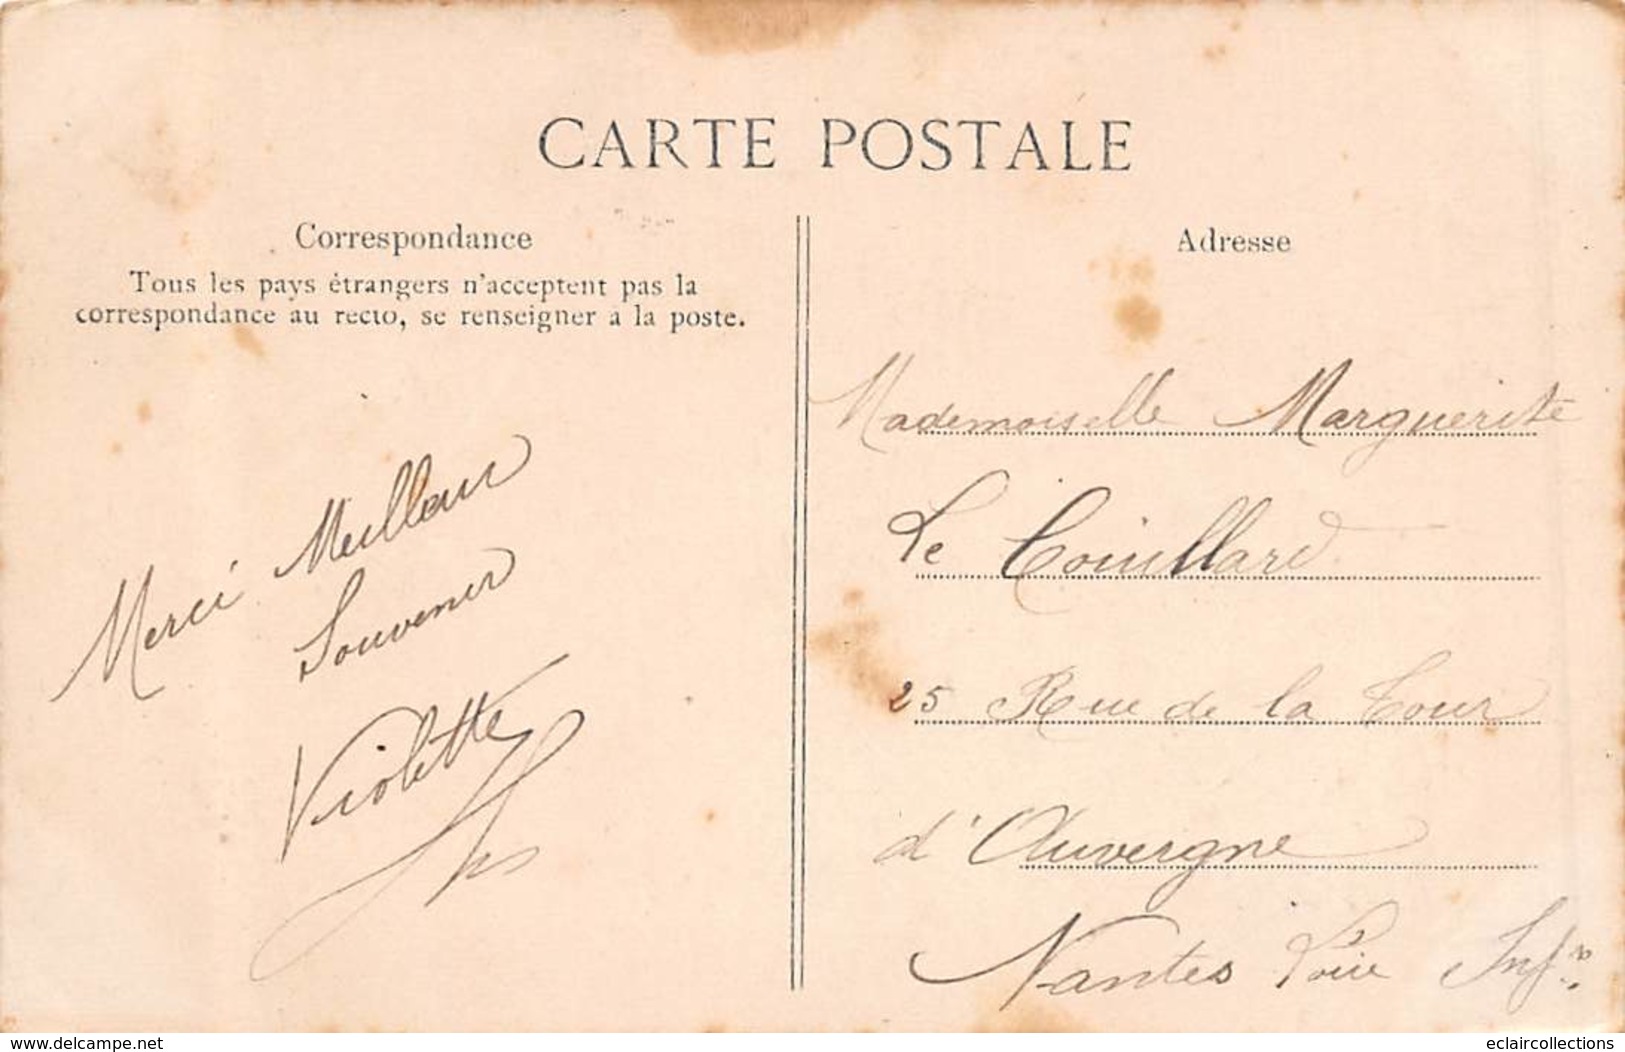 CARTE POSTALE
Correspondance
Tous les pays étrangers n'acceptent pas la
correspondance au recto, se renseigner à la poste.
Merci Meilleur
Souvenir
Violette
Adresse
Mademoiselle Marguerite
Le Couillard
25 Rue de la Tour
d'Auvergne
Nantes Loire Infre
www.delcampe.net
eclaircollections